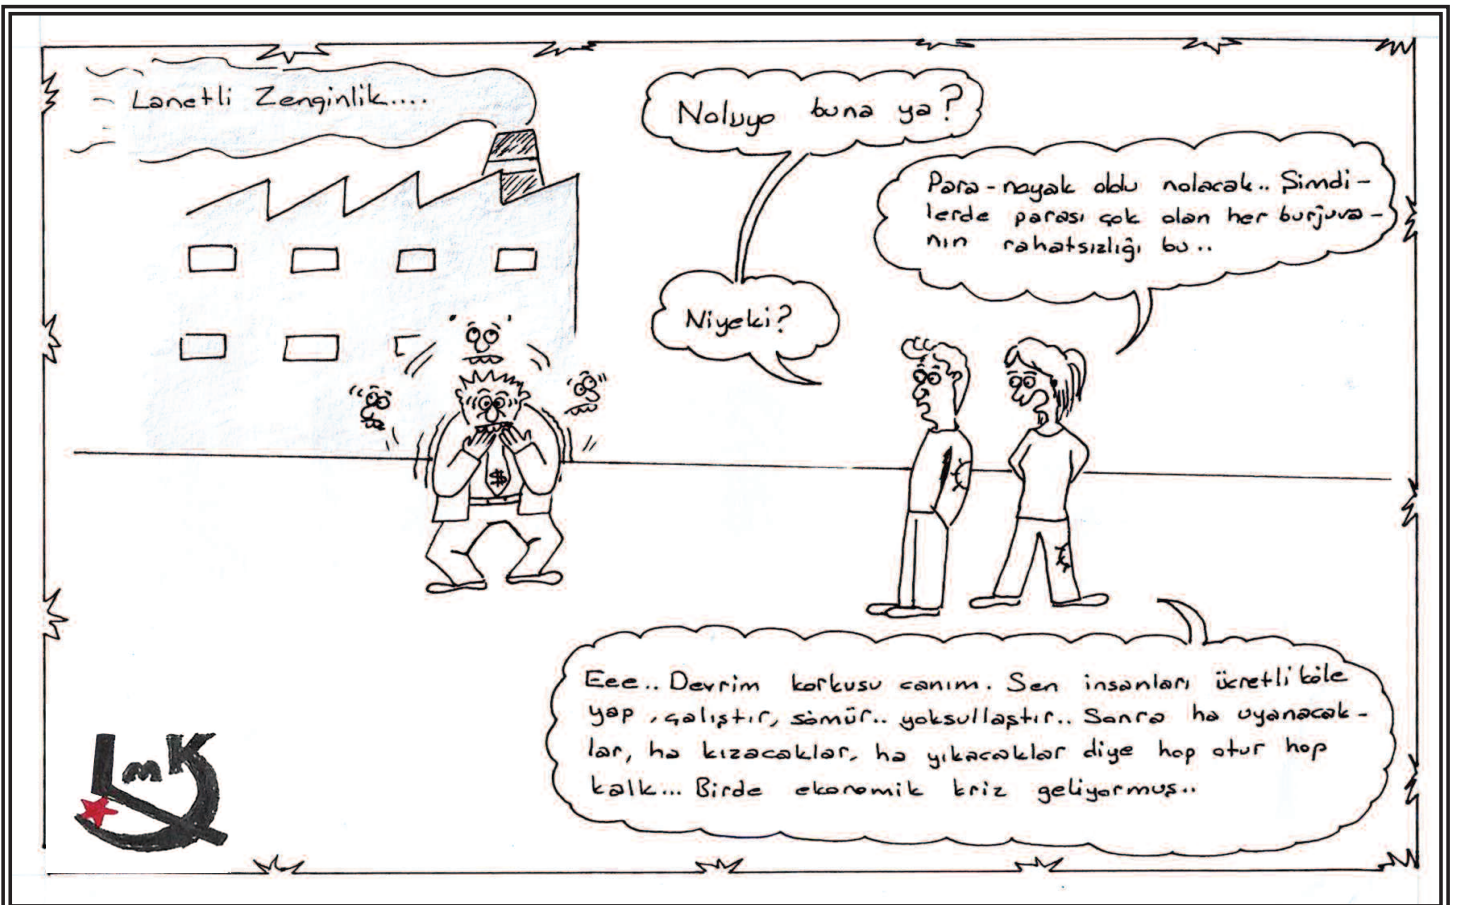 Lanetli Zenginlik....
Noluyo buna ya?
Niyeki?
Para-noyak oldu nolacak.. Şimdi-
lerde parası çok olan her burjuva-
nın rahatsızlığı bu..
$
Eee.. Devrim korkusu canım. Sen insanları ücretli köle
yap, çalıştır, sömür.. yoksullaştır.. Sonra ha uyanacak-
lar, ha kızacaklar, ha yıkacaklar diye hop otur hop
kalk... Birde ekonomik kriz geliyormuş..
LMK